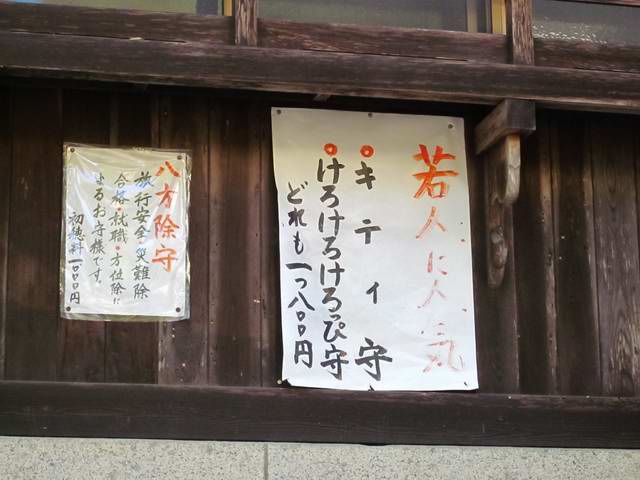 若人に人気
○キティ守
○けろけろけろっぴ守
どれも一つ八〇〇円
八方除守
旅行安全・災難除
合格就職・方位除に
よるお守様です。
初穂料一〇〇〇円